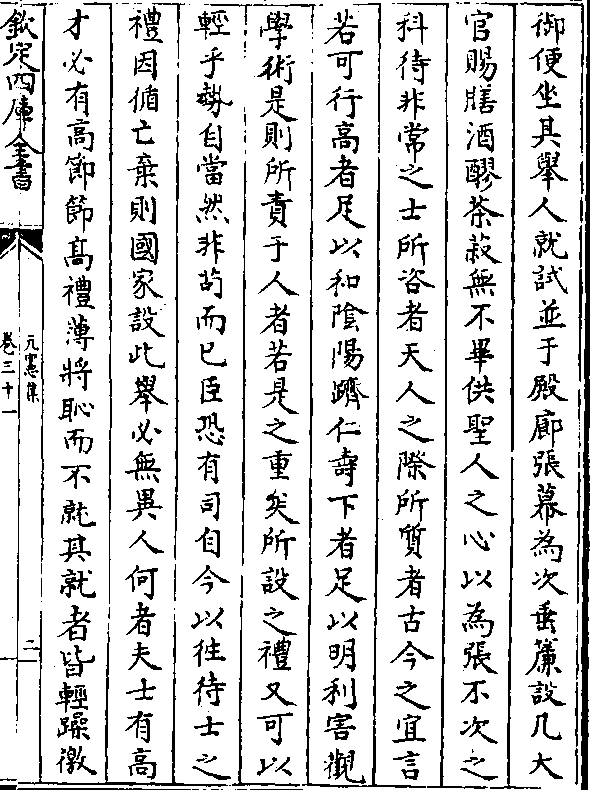 御便坐其舉人就試並于殿廊張幕為次垂簾設几大
官賜膳酒醪茶菽無不畢供聖人之心以為張不次之
科待非常之士所咨者天人之際所質者古今之宜言
若可行高者足以和陰陽躋仁壽下者足以明利害觀
學術是則所責于人者若是之重矣所設之禮又可以
輕乎勢自當然非苟而已臣恐有司自今以徃待士之
禮因循亡棄則國家設此舉必無異人何者夫士有高
才必有高節節高禮薄將恥而不就其就者皆輕躁徼
欽定四庫全書
元憲集
卷三十一
二